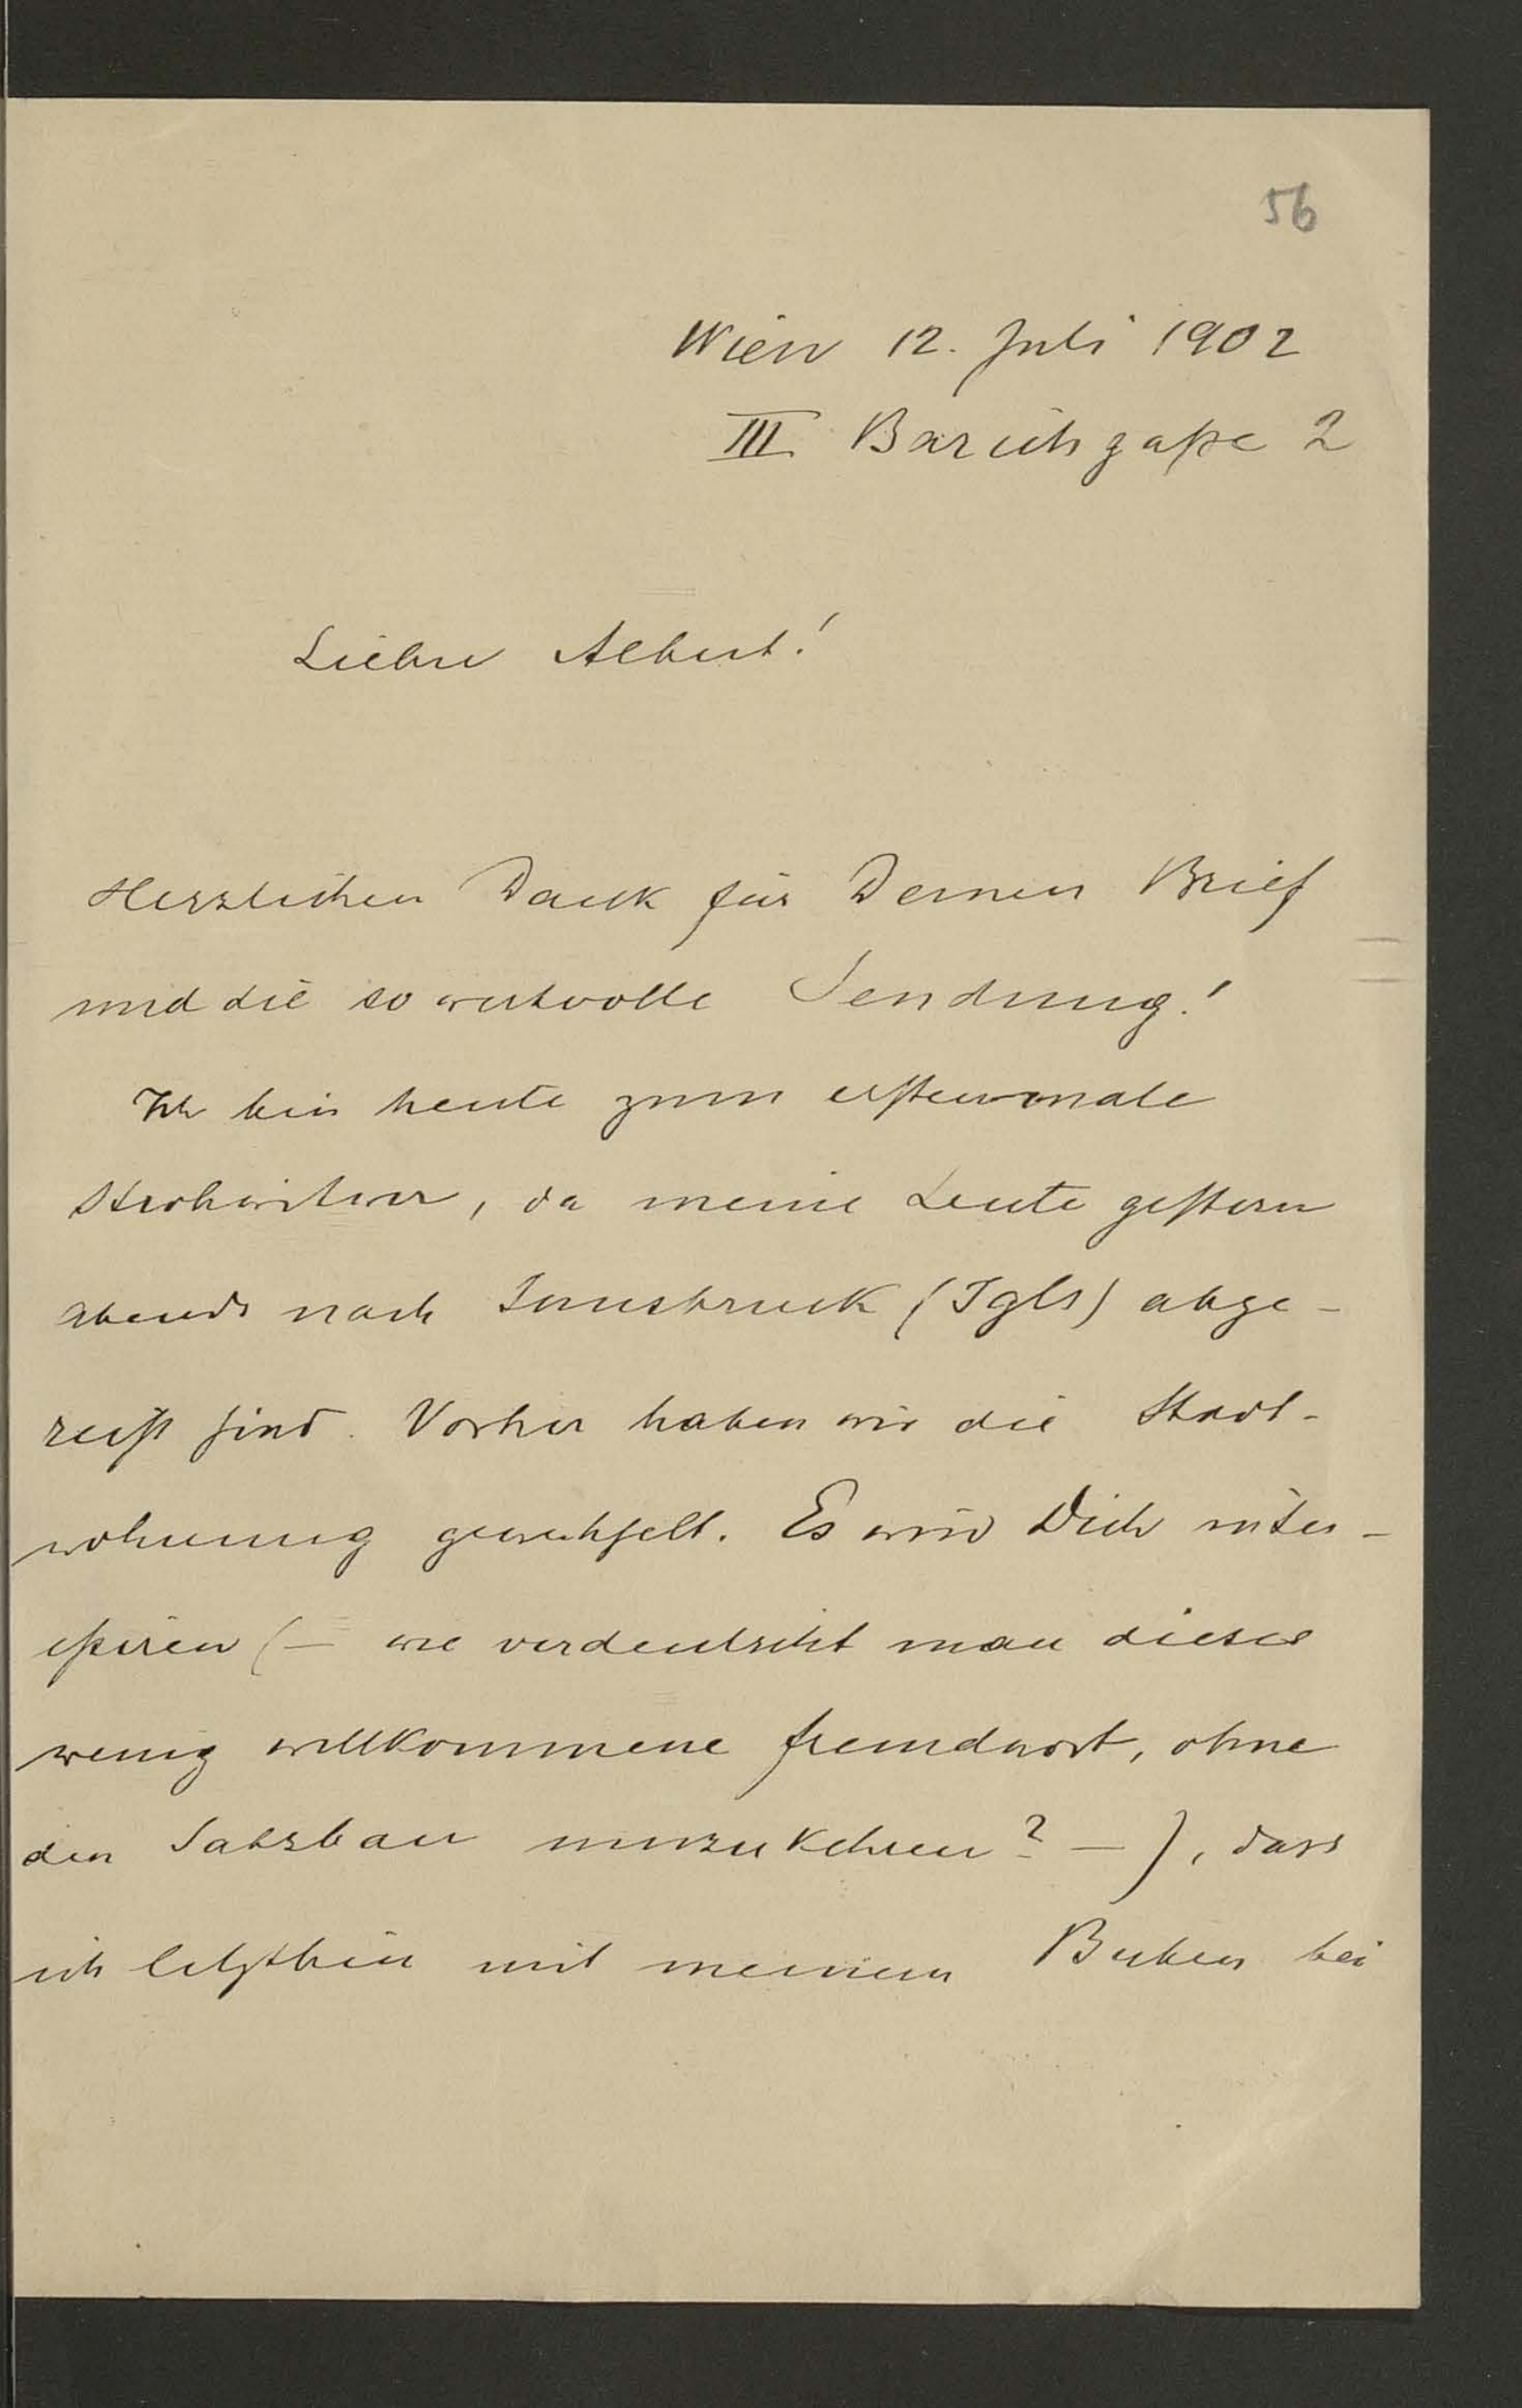 56
Wien 12. Juli 1902
III Barichgaße 2
Lieber Albert!
Herzlichen Dank für Deinen Brief
und die so wertvolle Sendung!
Ich bin heute zum erstenmale
Strohwitwer, da meine Leute gestern
abends nach Innsbruck (Igls) abge-
reist sind. Vorher haben wir die Stadt-
wohnung gewechselt. Es wird Dich inter-
eßiren (– wie verdeutscht man dieses
wenig willkommene Fremdwort, ohne
den Satzbau umzukehren? –), dass
ich letzthin mit meinem Buben bei